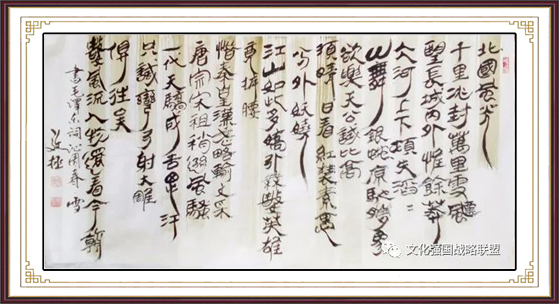 北國風光
千里冰封萬里雪飄
望長城内外惟餘莽
大河上下頓失滔〻
山舞銀蛇原馳蠟象
欲與天公試比高
須晴日看紅裝素裹
分外妖嬈
江山如此多嬌引無數英雄
竞折腰
惜秦皇漢武略輸文采
唐宗宋祖稍遜風騷
一代天驕成吉思汗
只識彎弓射大雕
俱往矣
數風流人物還看今朝
書毛澤東詞沁園春 雪
文化强国战略联盟